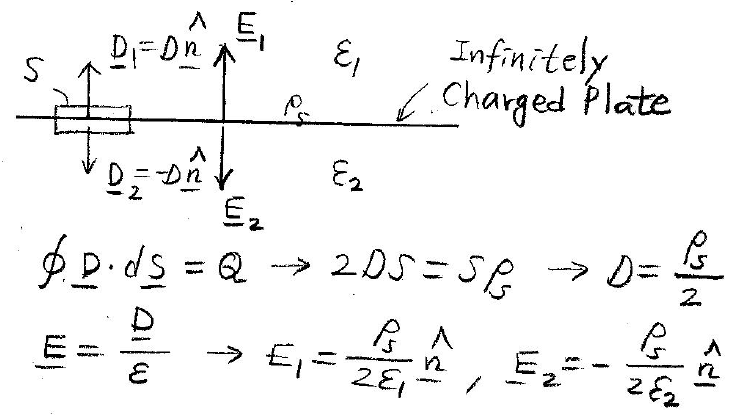 D̲₁=Dn̲̂ E̲₁ ε₁ Infinitely
S ρₛ Charged Plate
D̲₂=-Dn̲̂ ε₂
E̲₂
∮D̲·dS̲ = Q → 2DS = Sρₛ → D = ρₛ/2
E̲ = D̲/ε → E₁ = ρₛ/2ε₁ n̲̂ , E̲₂ = - ρₛ/2ε₂ n̲̂